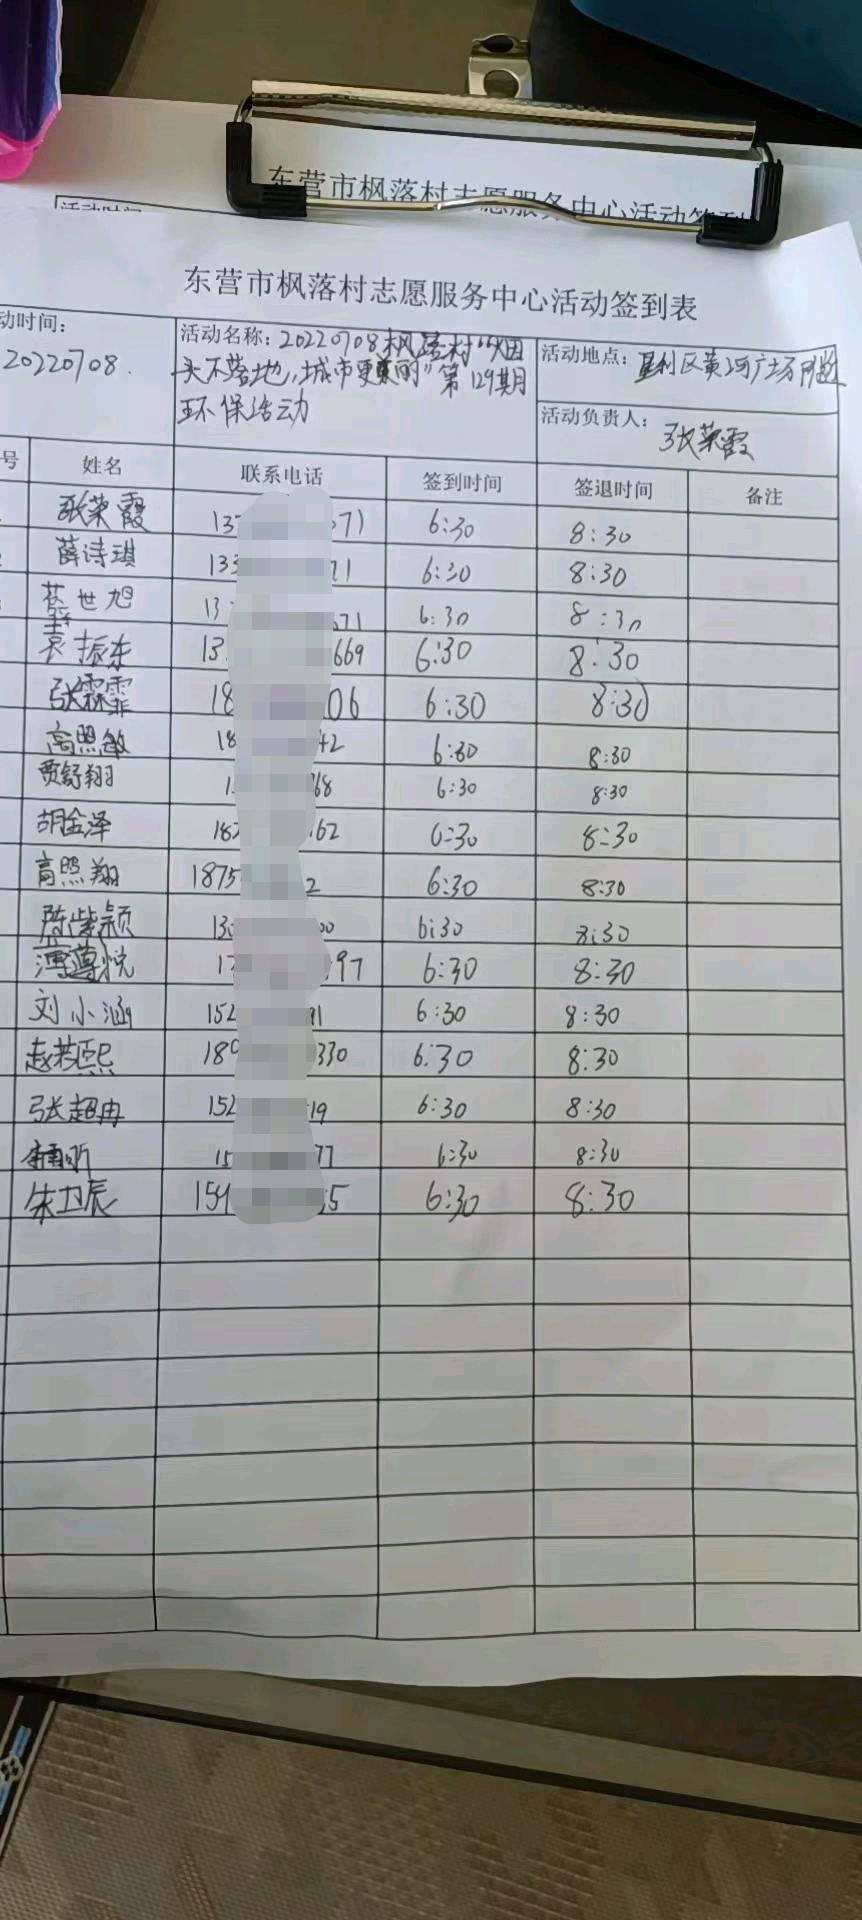 东营市枫落村志愿服务中心活动签到
东营市枫落村志愿服务中心活动签到表
动时间:
20220708.
活动名称: 20220708枫落村"烟
头不落地,城市更美丽"第129期
环保活动
活动地点: 垦利区黄河广场
活动负责人: 张荣霞
号 姓名 联系电话 签到时间 签退时间 备注
张荣霞 137 671 6:30 8:30
薛诗琪 133 21 6:30 8:30
世旭 13 671 6:30 8:30
袁振东 13 669 6:30 8:30
张霖霏 18 06 6:30 8:30
高照敏 18 42 6:30 8:30
贾舒翔 1 68 6:30 8:30
胡金泽 182 162 6:30 8:30
高照翔 1875 2 6:30 8:30
陈紫颖 130 00 6:30 8:30
薄蕁悦 17 97 6:30 8:30
刘小涵 152 91 6:30 8:30
赵若熙 189 330 6:30 8:30
张超冉 152 19 6:30 8:30
昕 15 77 6:30 8:30
朱卫辰 159 5 6:30 8:30